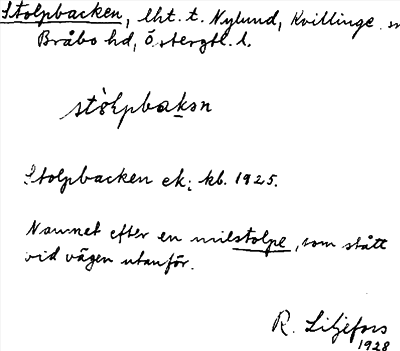 Stolpbacken, lht. t. Nylund, Kvillinge
Bråbo hd, Östergtl. l.
stòlpbakən
Stolpbacken ek; kb. 1925.
Namnet efter en milstolpe, som stått
vid vägen utanför.
R. Liljefors
1928